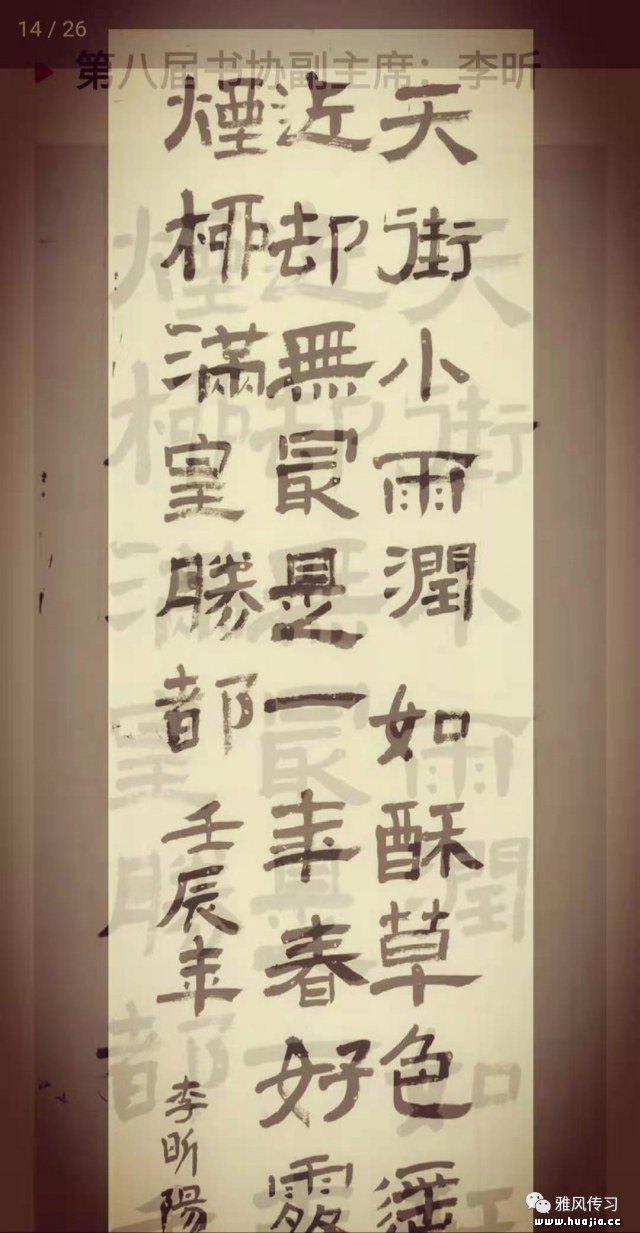 14 / 26
第八届书协副主席：李昕
天街小雨潤如酥草色遥
近却無最是一年春好
煙柳滿皇勝都
壬辰年
李昕陽
雅风传习
www.huajia.cc